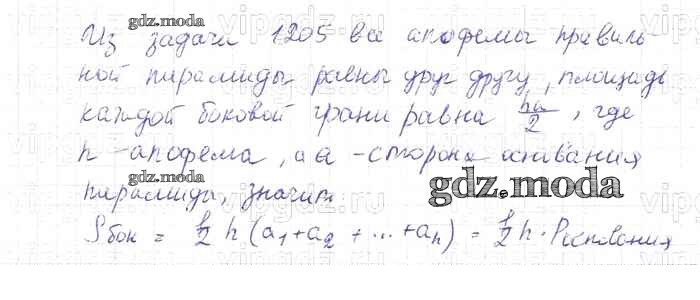 gdz.moda
Из задачи 1205 все апофемы правиль-
ной пирамиды равны друг другу, площадь
каждой боковой грани равна ha/2, где
h - апофема, а a - сторона основания
gdz.moda
пирамиды, значит
Sбок = 1/2 h (a₁+a₂ + ... + aₙ) = 1/2 h · Pоснования